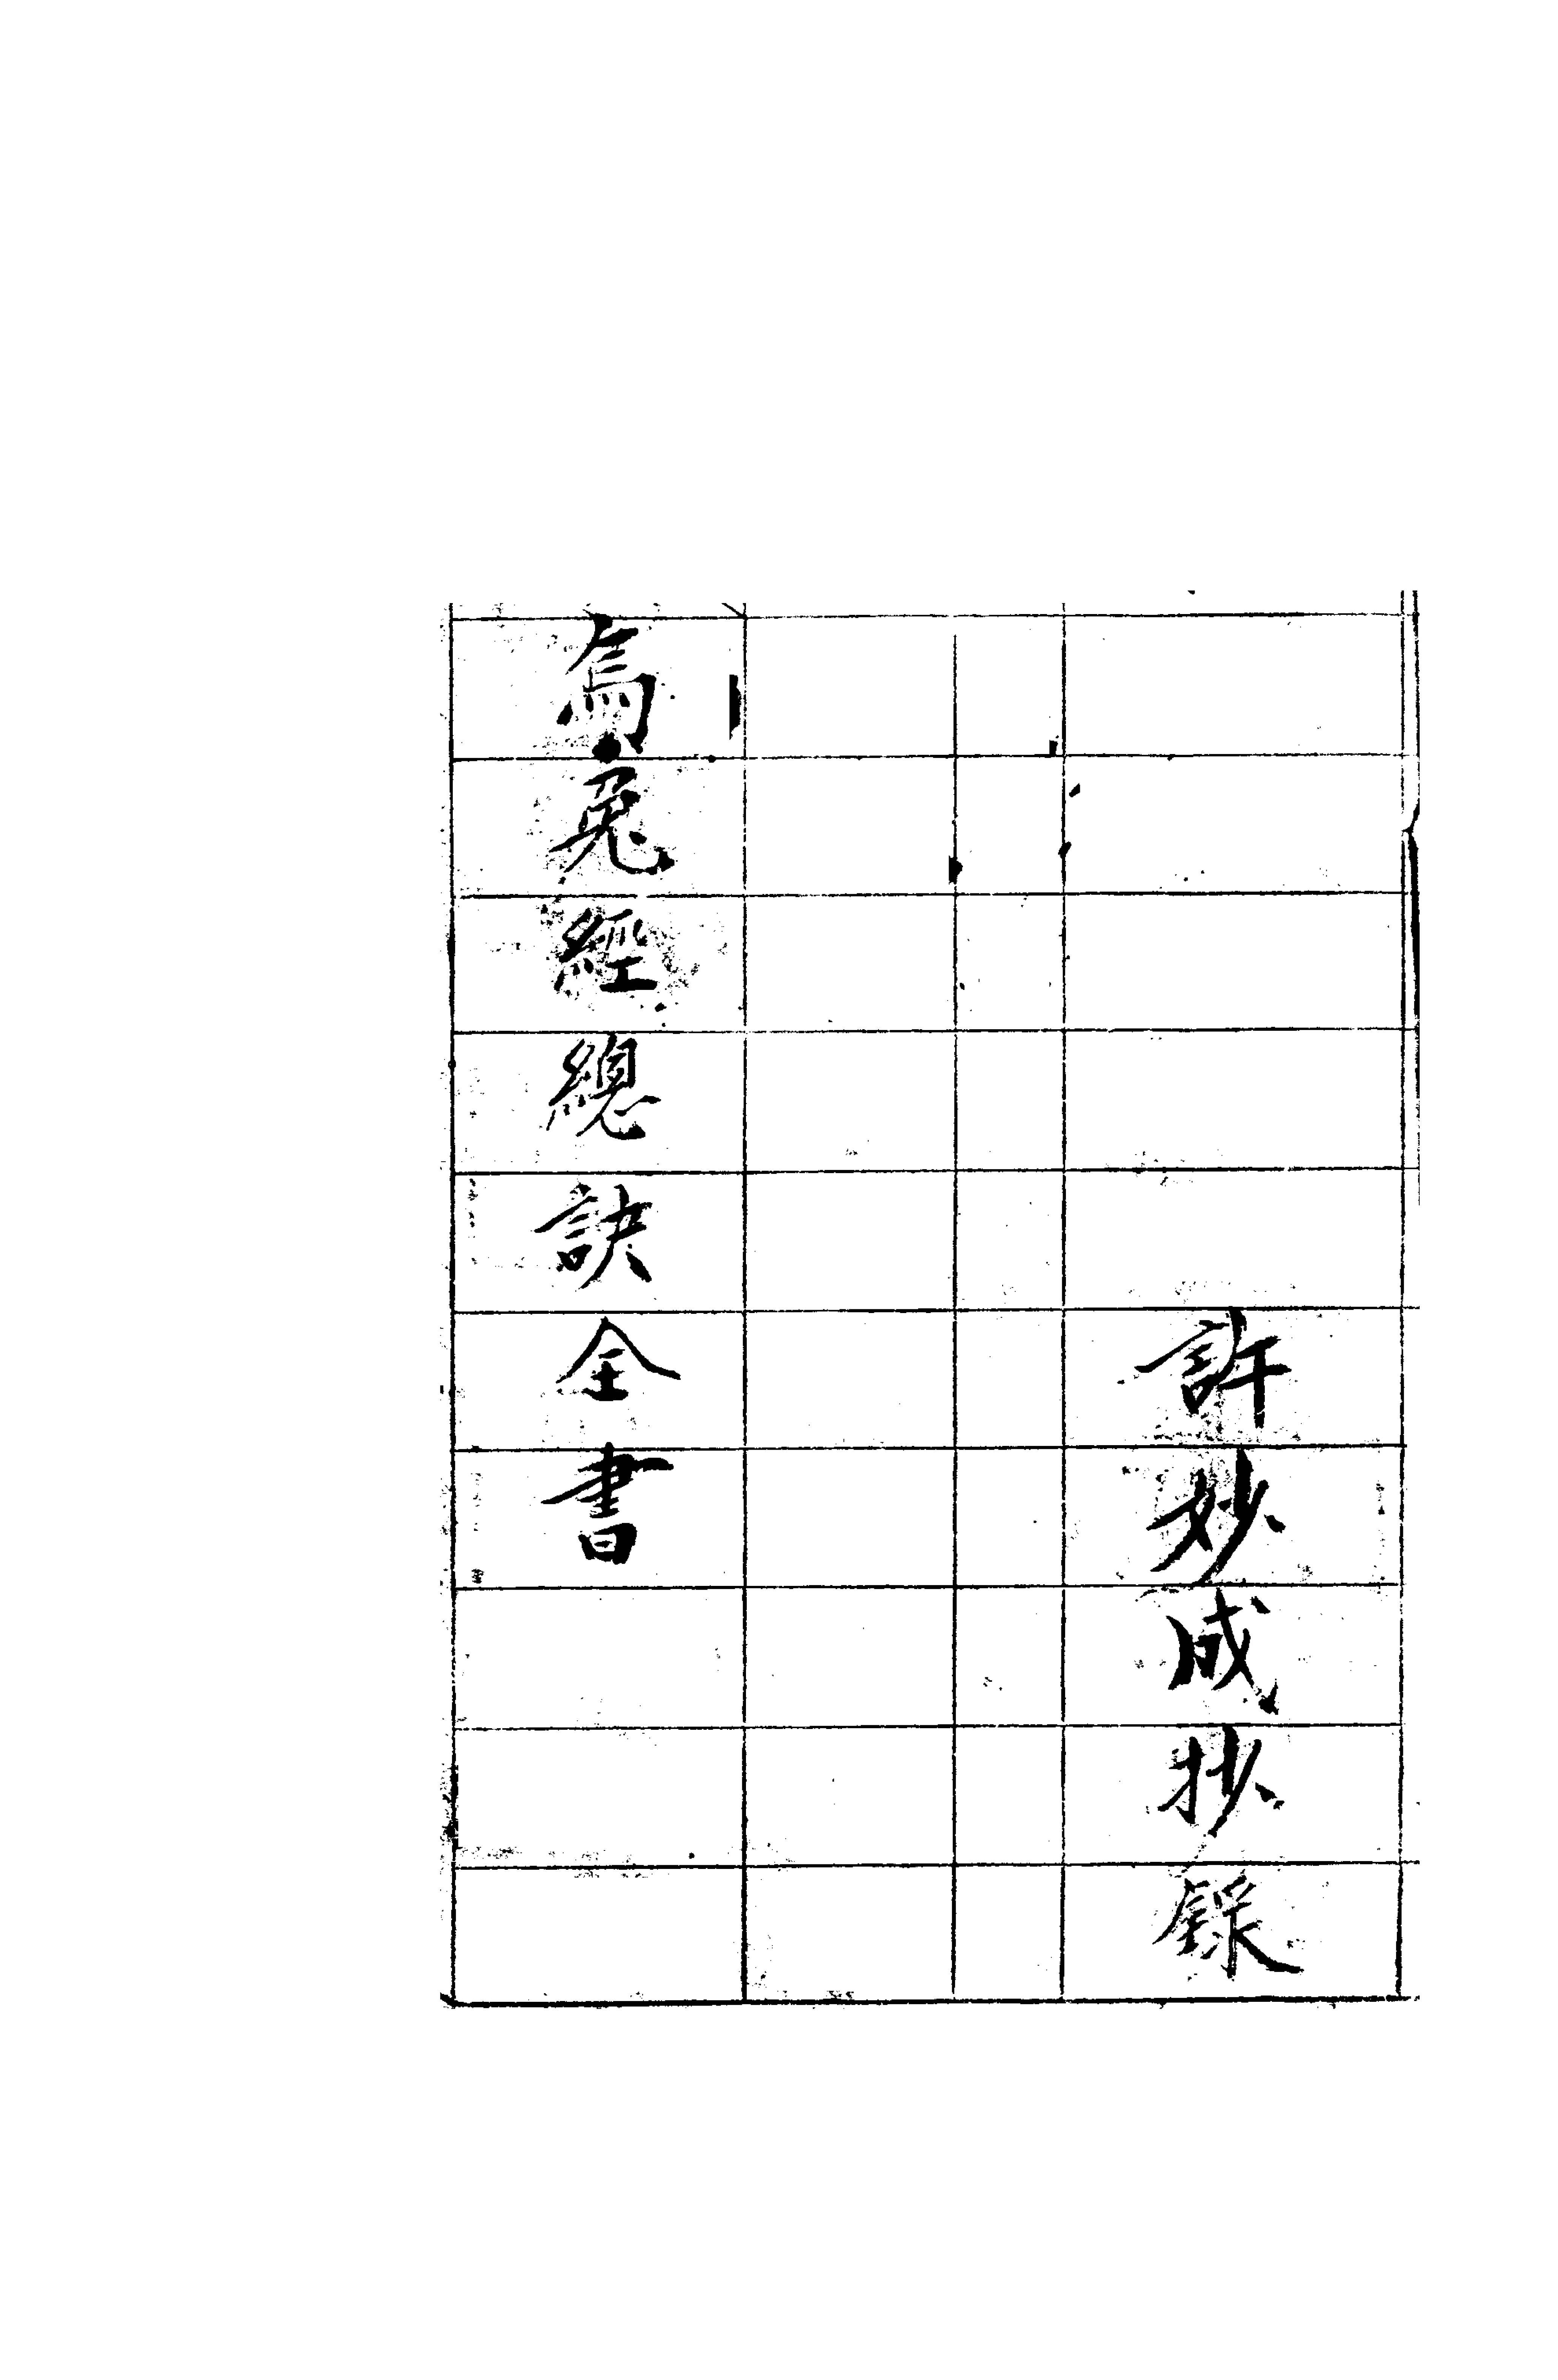 許妙成抄録
烏兔經總訣全書